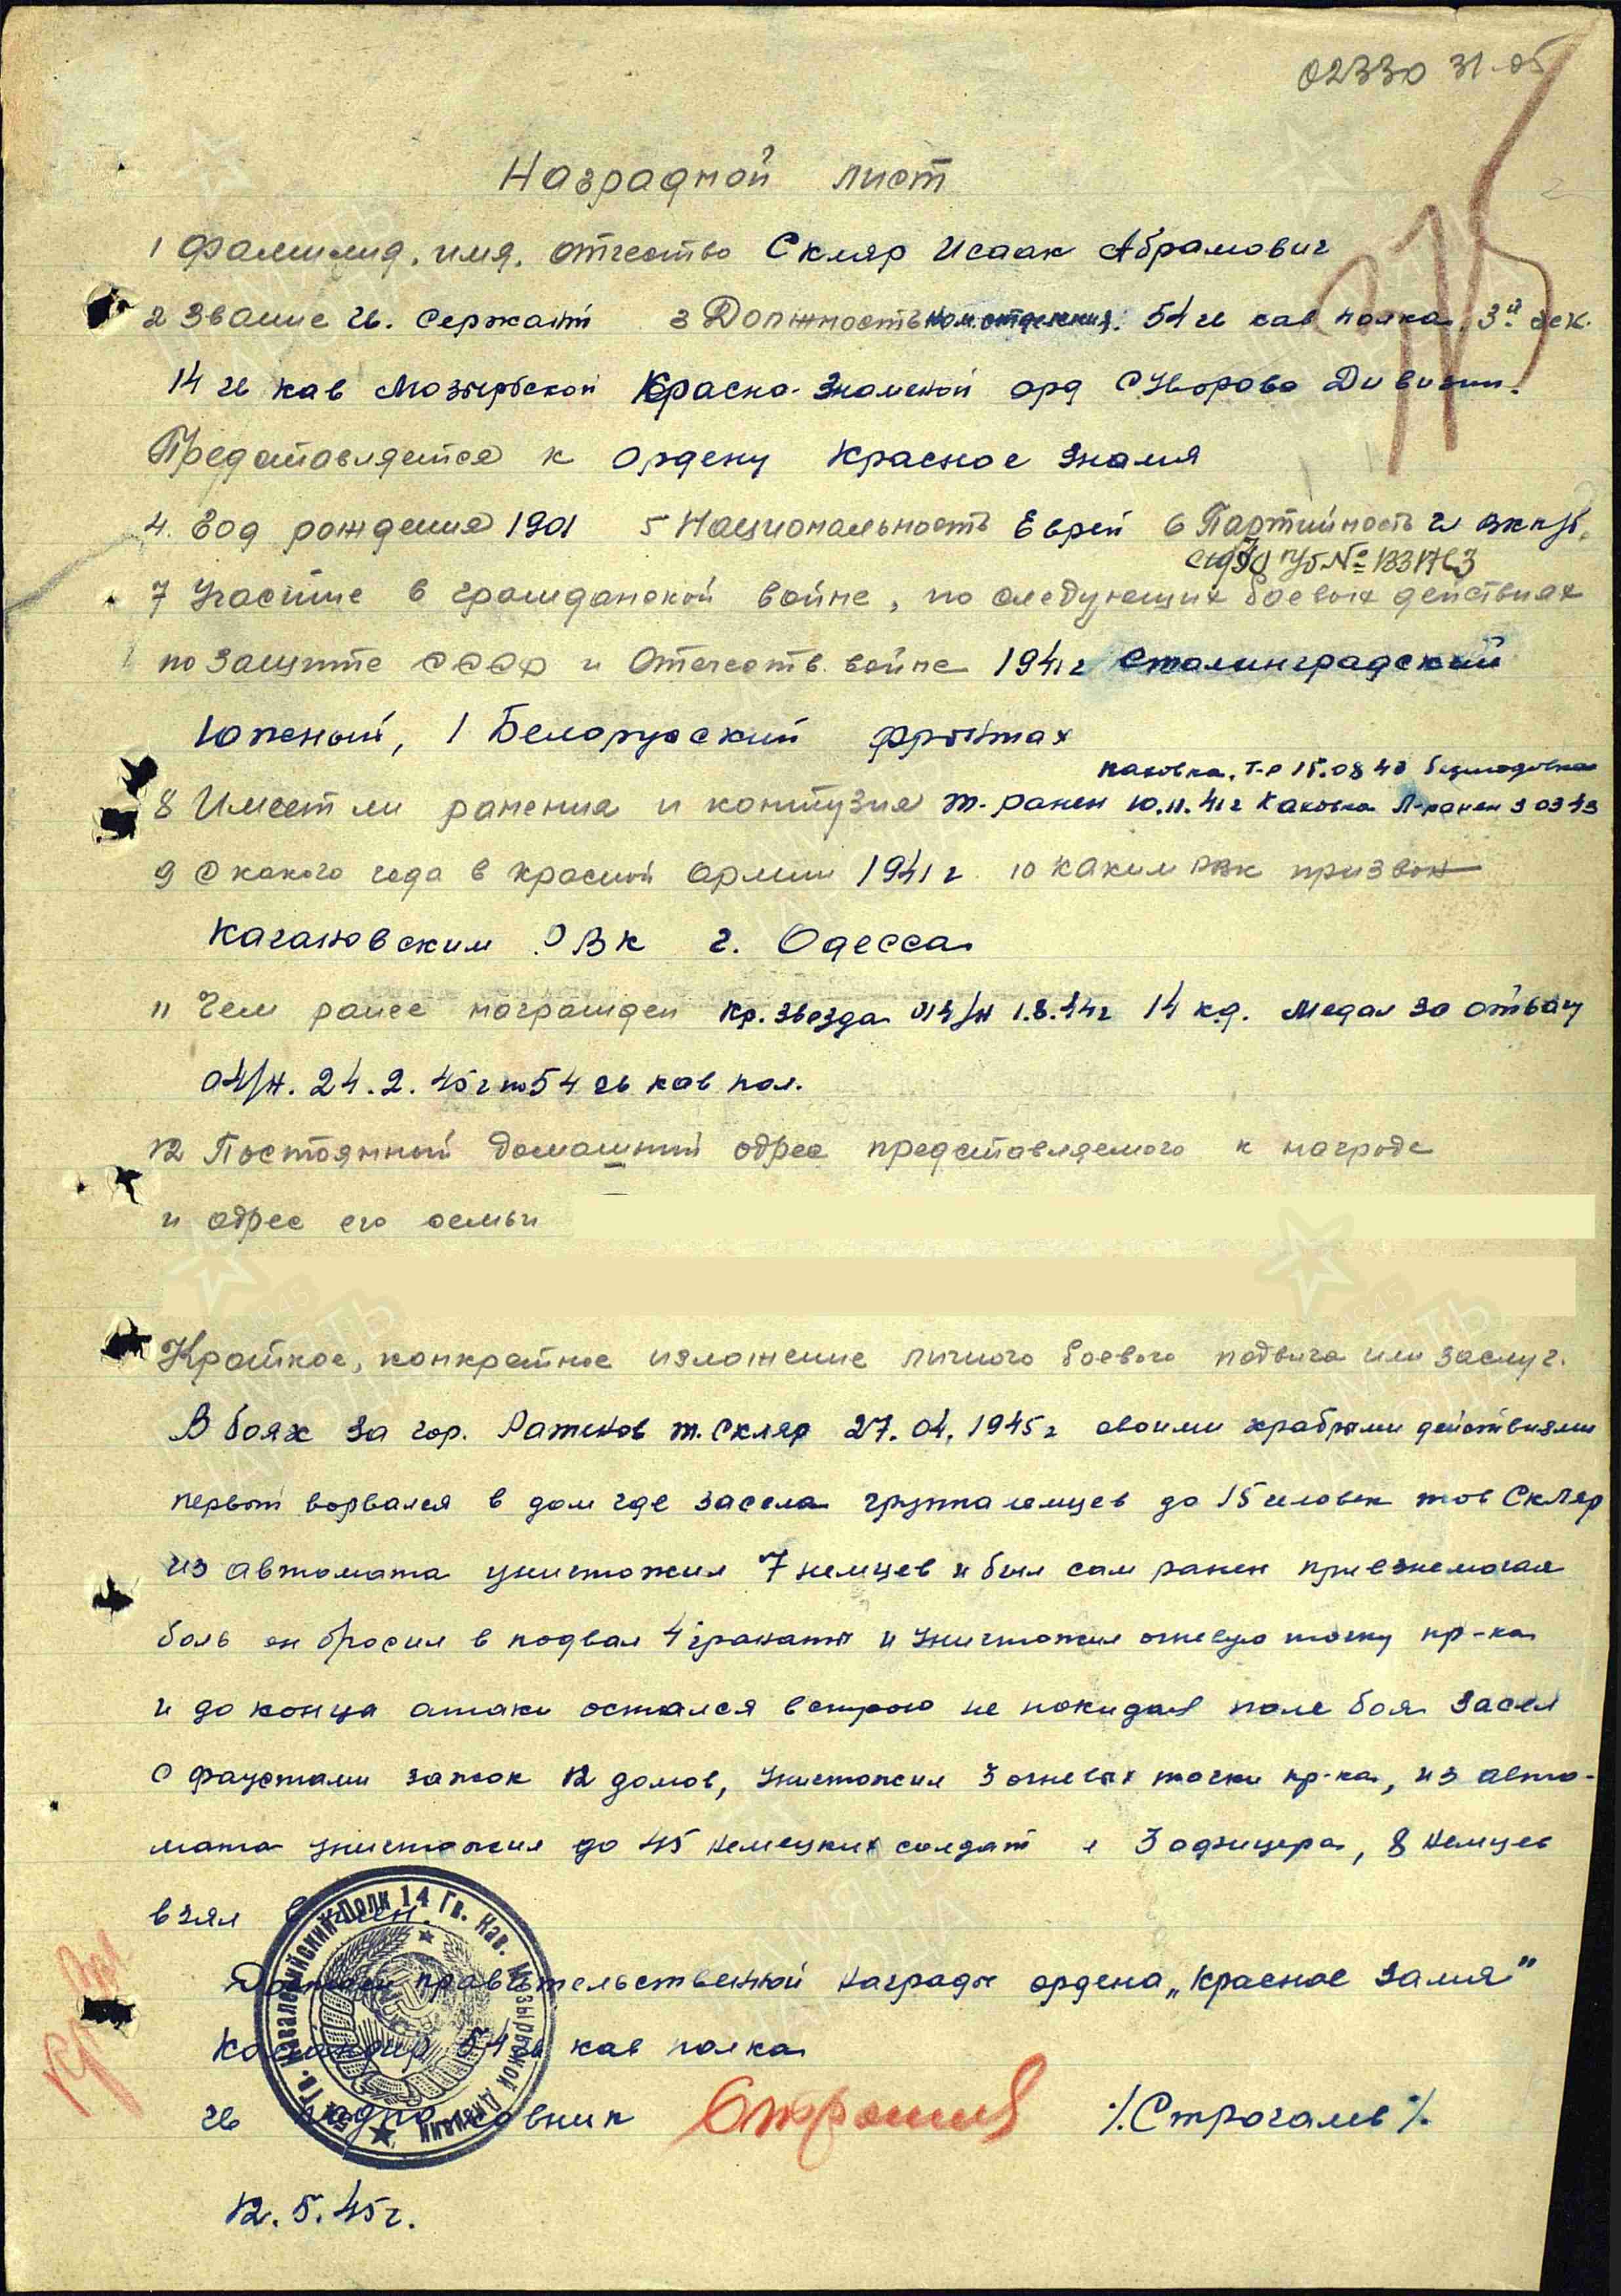 02330 31.05
Наградной лист
1 Фамилия, имя, отчество Скляр Исаак Абрамович
2 Звание гв. Сержант 3 Должность ком. отделения. 54 гв кав полка. 3й эск.
14 гв кав Мозырьской Красно-Знаменой орд Суворова Дивизии.
Представляется к ордену Красное Знамя
4. Год рождения 1901 5 Национальность Еврей 6 Партийность чл ВКП/б.
7 Участие в гражданской войне, по следующих боевых действиях
по защите СССР и Отечеств. войне 1941г Сталинградский
Юженый, 1 Белоруский фронтах
Каховка. Т-р 15.08.43
8 Имеет ли ранения и контузия т. ранен 10.11.41г Каховка Л-ранен 3 03 43
9 С какого года в красной армии 1941г 10 каким РВК призван
Кагановским РВК г. Одесса
11 Чем ранее награжден Кр. звезда 014/н 1.8.44г 14 кд. Медал за отвагу
04/н. 24.2.45г по 54 гв кав пол.
12 Постоянный домашний адрес представляемого к награде
и адрес его семьи
Краткое, конкретное изложение личного боевого подвига или заслуг.
В боях за гор. Ратенов т. Скляр 27.04.1945г своими храбрыми действиями
первым ворвался в дом где засела группа немцев до 15 человек тов Скляр
из автомата уничтожил 7 немцев и был сам ранен
боль он бросил в подвал 4 гранаты и уничтожил огневую точку пр-ка
и до конца атаки остался в строю не покидал поле боя засел
с фаустами зажок 12 домов, уничтожил 3 огневых точки пр-ка, из авто-
мата уничтожил до 45 немецких солдат и 3 офицера, 8 немцев
взял в плен.
Достоин правительственной награды ордена „Красное Замя"
Командир 54 гв кав полка
гв подполковник /.Строгалев/.
12.5.45г.
54 Гв. Кавалерийский Полк 14 Гв. Кав. Мозырьской Дивизии